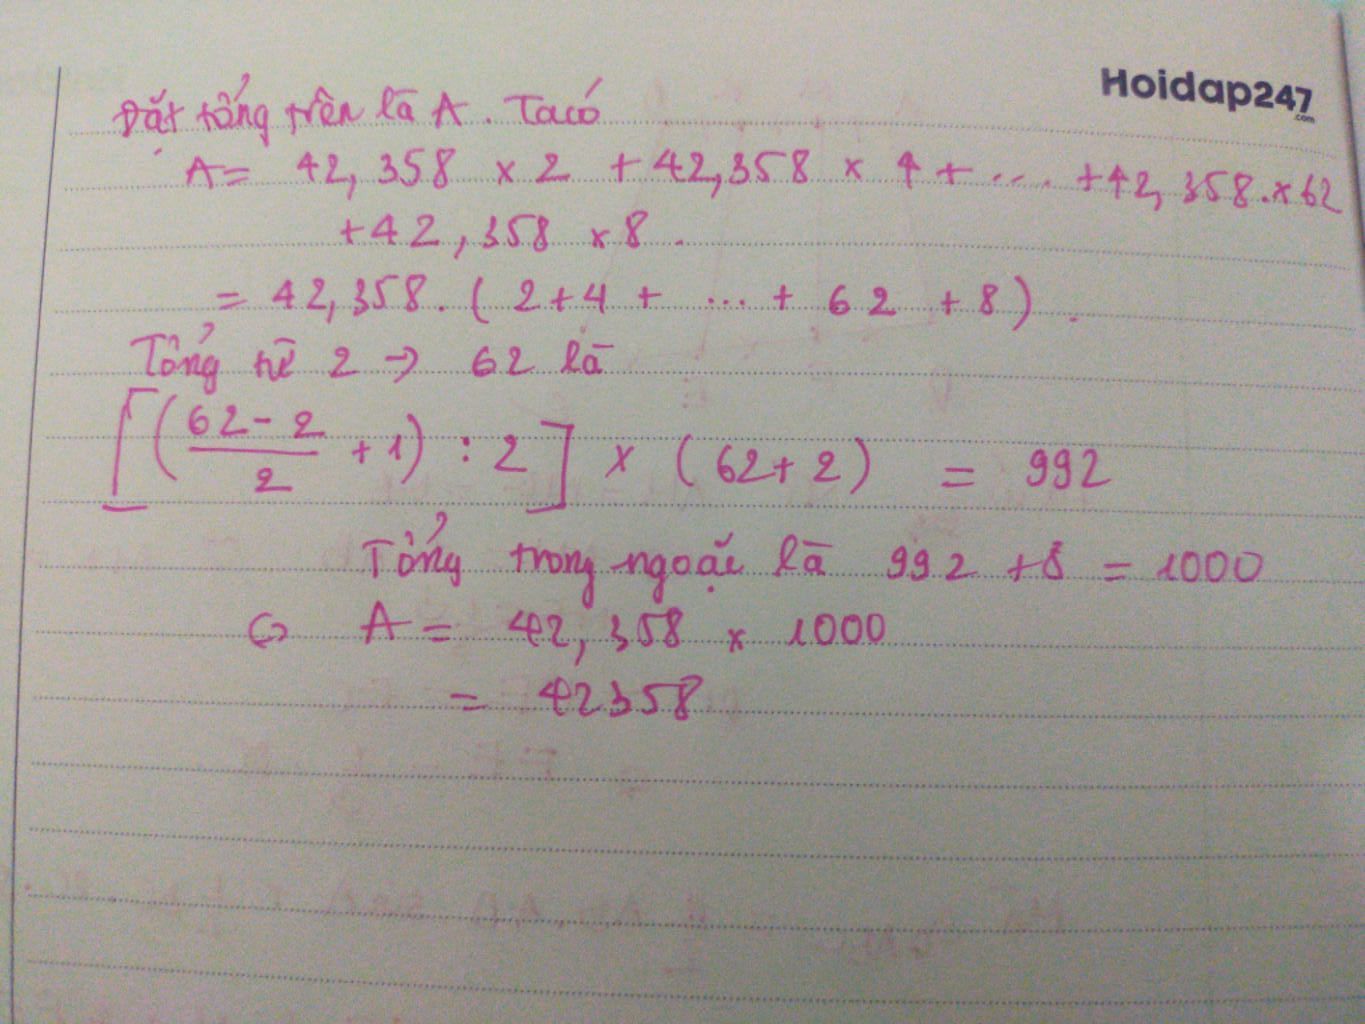 Hoidap247
.com
Đặt tổng trên là A. Ta có
A = 42,358 x 2 + 42,358 x 4 + .... + 42,358 . x 62
+ 42,358 x 8.
= 42,358. ( 2 + 4 + ... + 62 + 8 ) .
Tổng từ 2 → 62 là
[ ( \frac{62 - 2}{2} + 1 ) : 2 ] x ( 62 + 2 ) = 992
Tổng trong ngoặc là 992 + 8 = 1000
⇔ A = 42,358 x 1000
= 42358